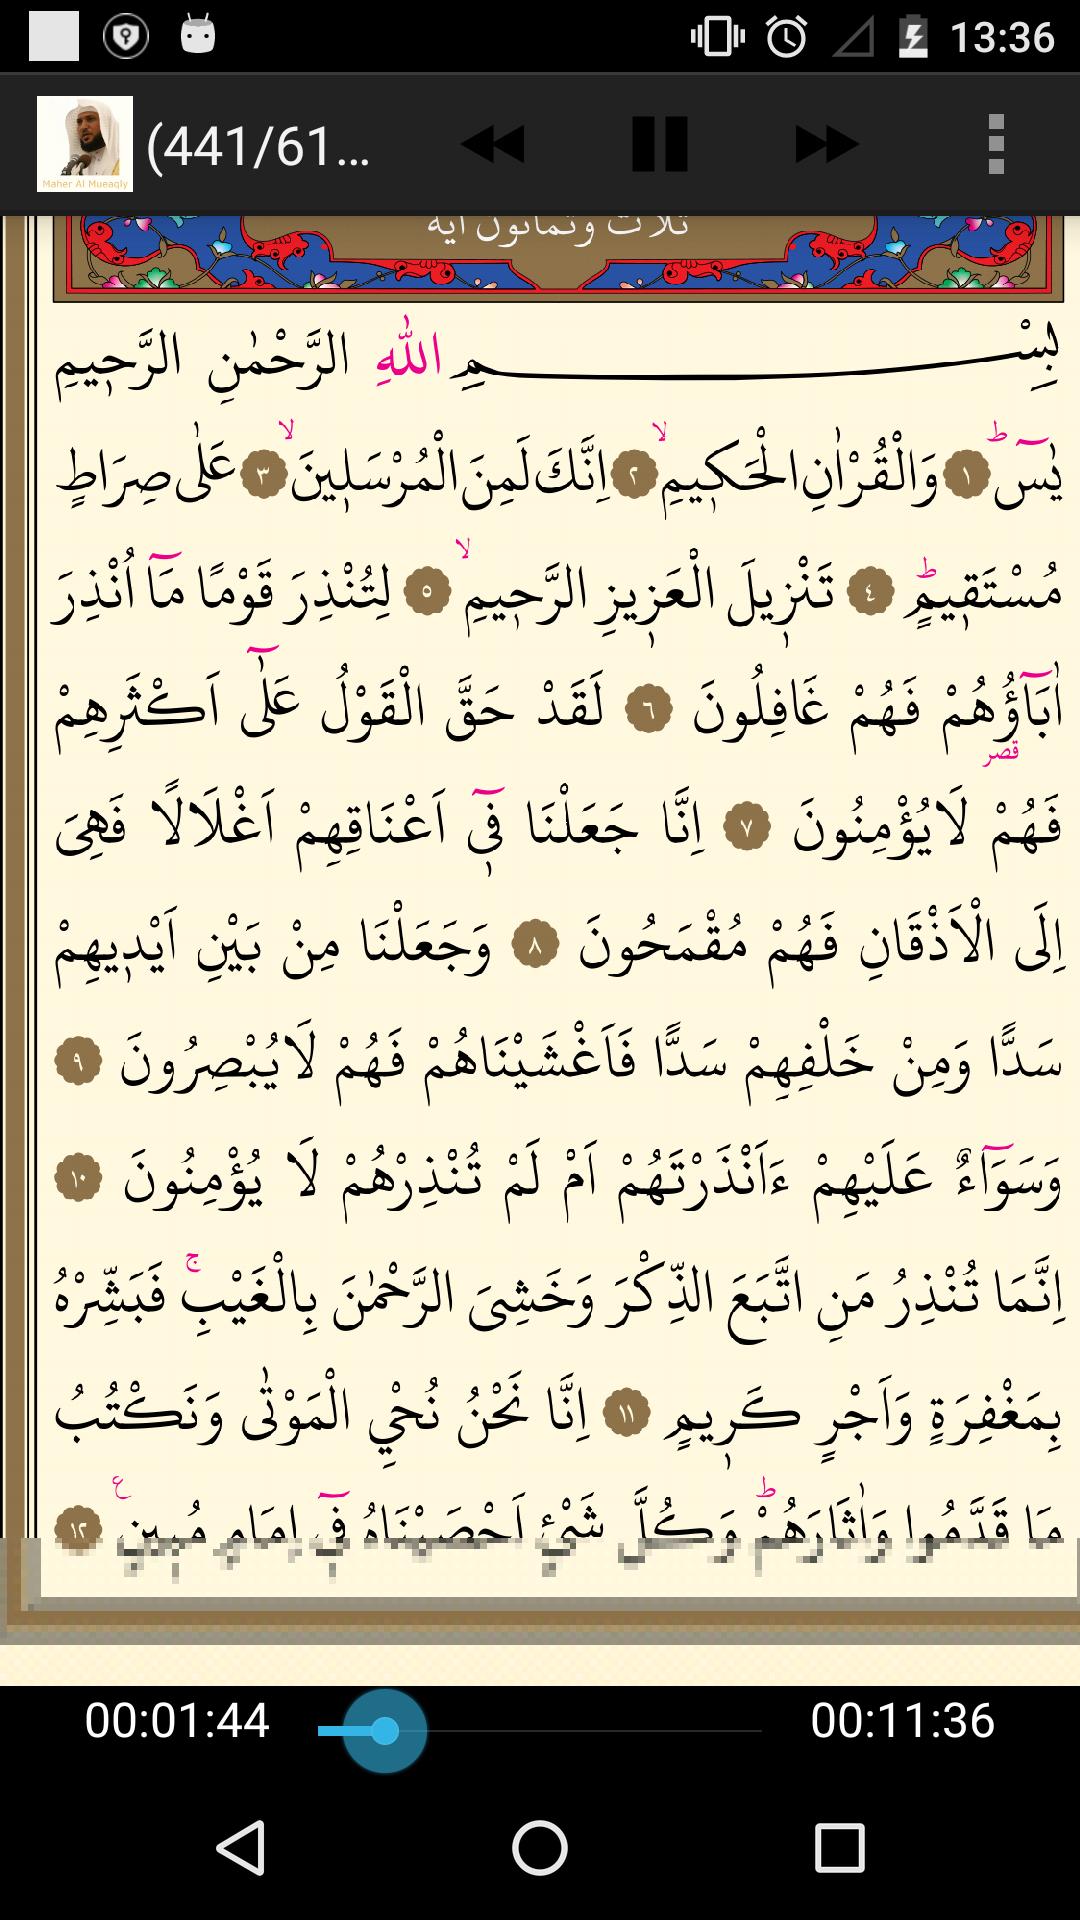 13:36
Maher Al Mueaqly
(441/61...
ثلاث وثمانون آية
بِسْمِ اللّٰهِ الرَّحْمٰنِ الرَّحٖيمِ
يٰسٓ ۜ ﴿١﴾ وَالْقُرْاٰنِ الْحَكٖيمِۙ ﴿٢﴾ اِنَّكَ لَمِنَ الْمُرْسَلٖينَۙ ﴿٣﴾ عَلٰى صِرَاطٍ
مُسْتَقٖيمٍؕ ﴿٤﴾ تَنْزٖيلَ الْعَزٖيزِ الرَّحٖيمِۙ ﴿٥﴾ لِتُنْذِرَ قَوْمًا مَٓا اُنْذِرَ
اٰبَٓاؤُ۬هُمْ فَهُمْ غَافِلُونَ ﴿٦﴾ لَقَدْ حَقَّ الْقَوْلُ عَلٰٓى اَكْثَرِهِمْ
قصر
فَهُمْ لَايُؤْمِنُونَ ﴿٧﴾ اِنَّا جَعَلْنَا فٖٓي اَعْنَاقِهِمْ اَغْلَالًا فَهِىَ
اِلَى الْاَذْقَانِ فَهُمْ مُقْمَحُونَ ﴿٨﴾ وَجَعَلْنَا مِنْ بَيْنِ اَيْدٖيهِمْ
سَدًّا وَمِنْ خَلْفِهِمْ سَدًّا فَاَغْشَيْنَاهُمْ فَهُمْ لَايُبْصِرُونَ ﴿٩﴾
وَسَوَٓاءٌ عَلَيْهِمْ ءَاَنْذَرْتَهُمْ اَمْ لَمْ تُنْذِرْهُمْ لَا يُؤْمِنُونَ ﴿١٠﴾
اِنَّمَا تُنْذِرُ مَنِ اتَّبَعَ الذِّكْرَ وَخَشِىَ الرَّحْمٰنَ بِالْغَيْبِۚ فَبَشِّرْهُ
بِمَغْفِرَةٍ وَاَجْرٍ كَرٖيمٍ ﴿١١﴾ اِنَّا نَحْنُ نُحْيِ الْمَوْتٰى وَنَكْتُبُ
مَا قَدَّمُوا وَاٰثَارَهُمْؕ وَكُلَّ شَيْءٍ اَحْصَيْنَاهُ فٖٓي اِمَامٍ مُبٖينٍ ع ﴿١٢﴾
00:01:44 00:11:36